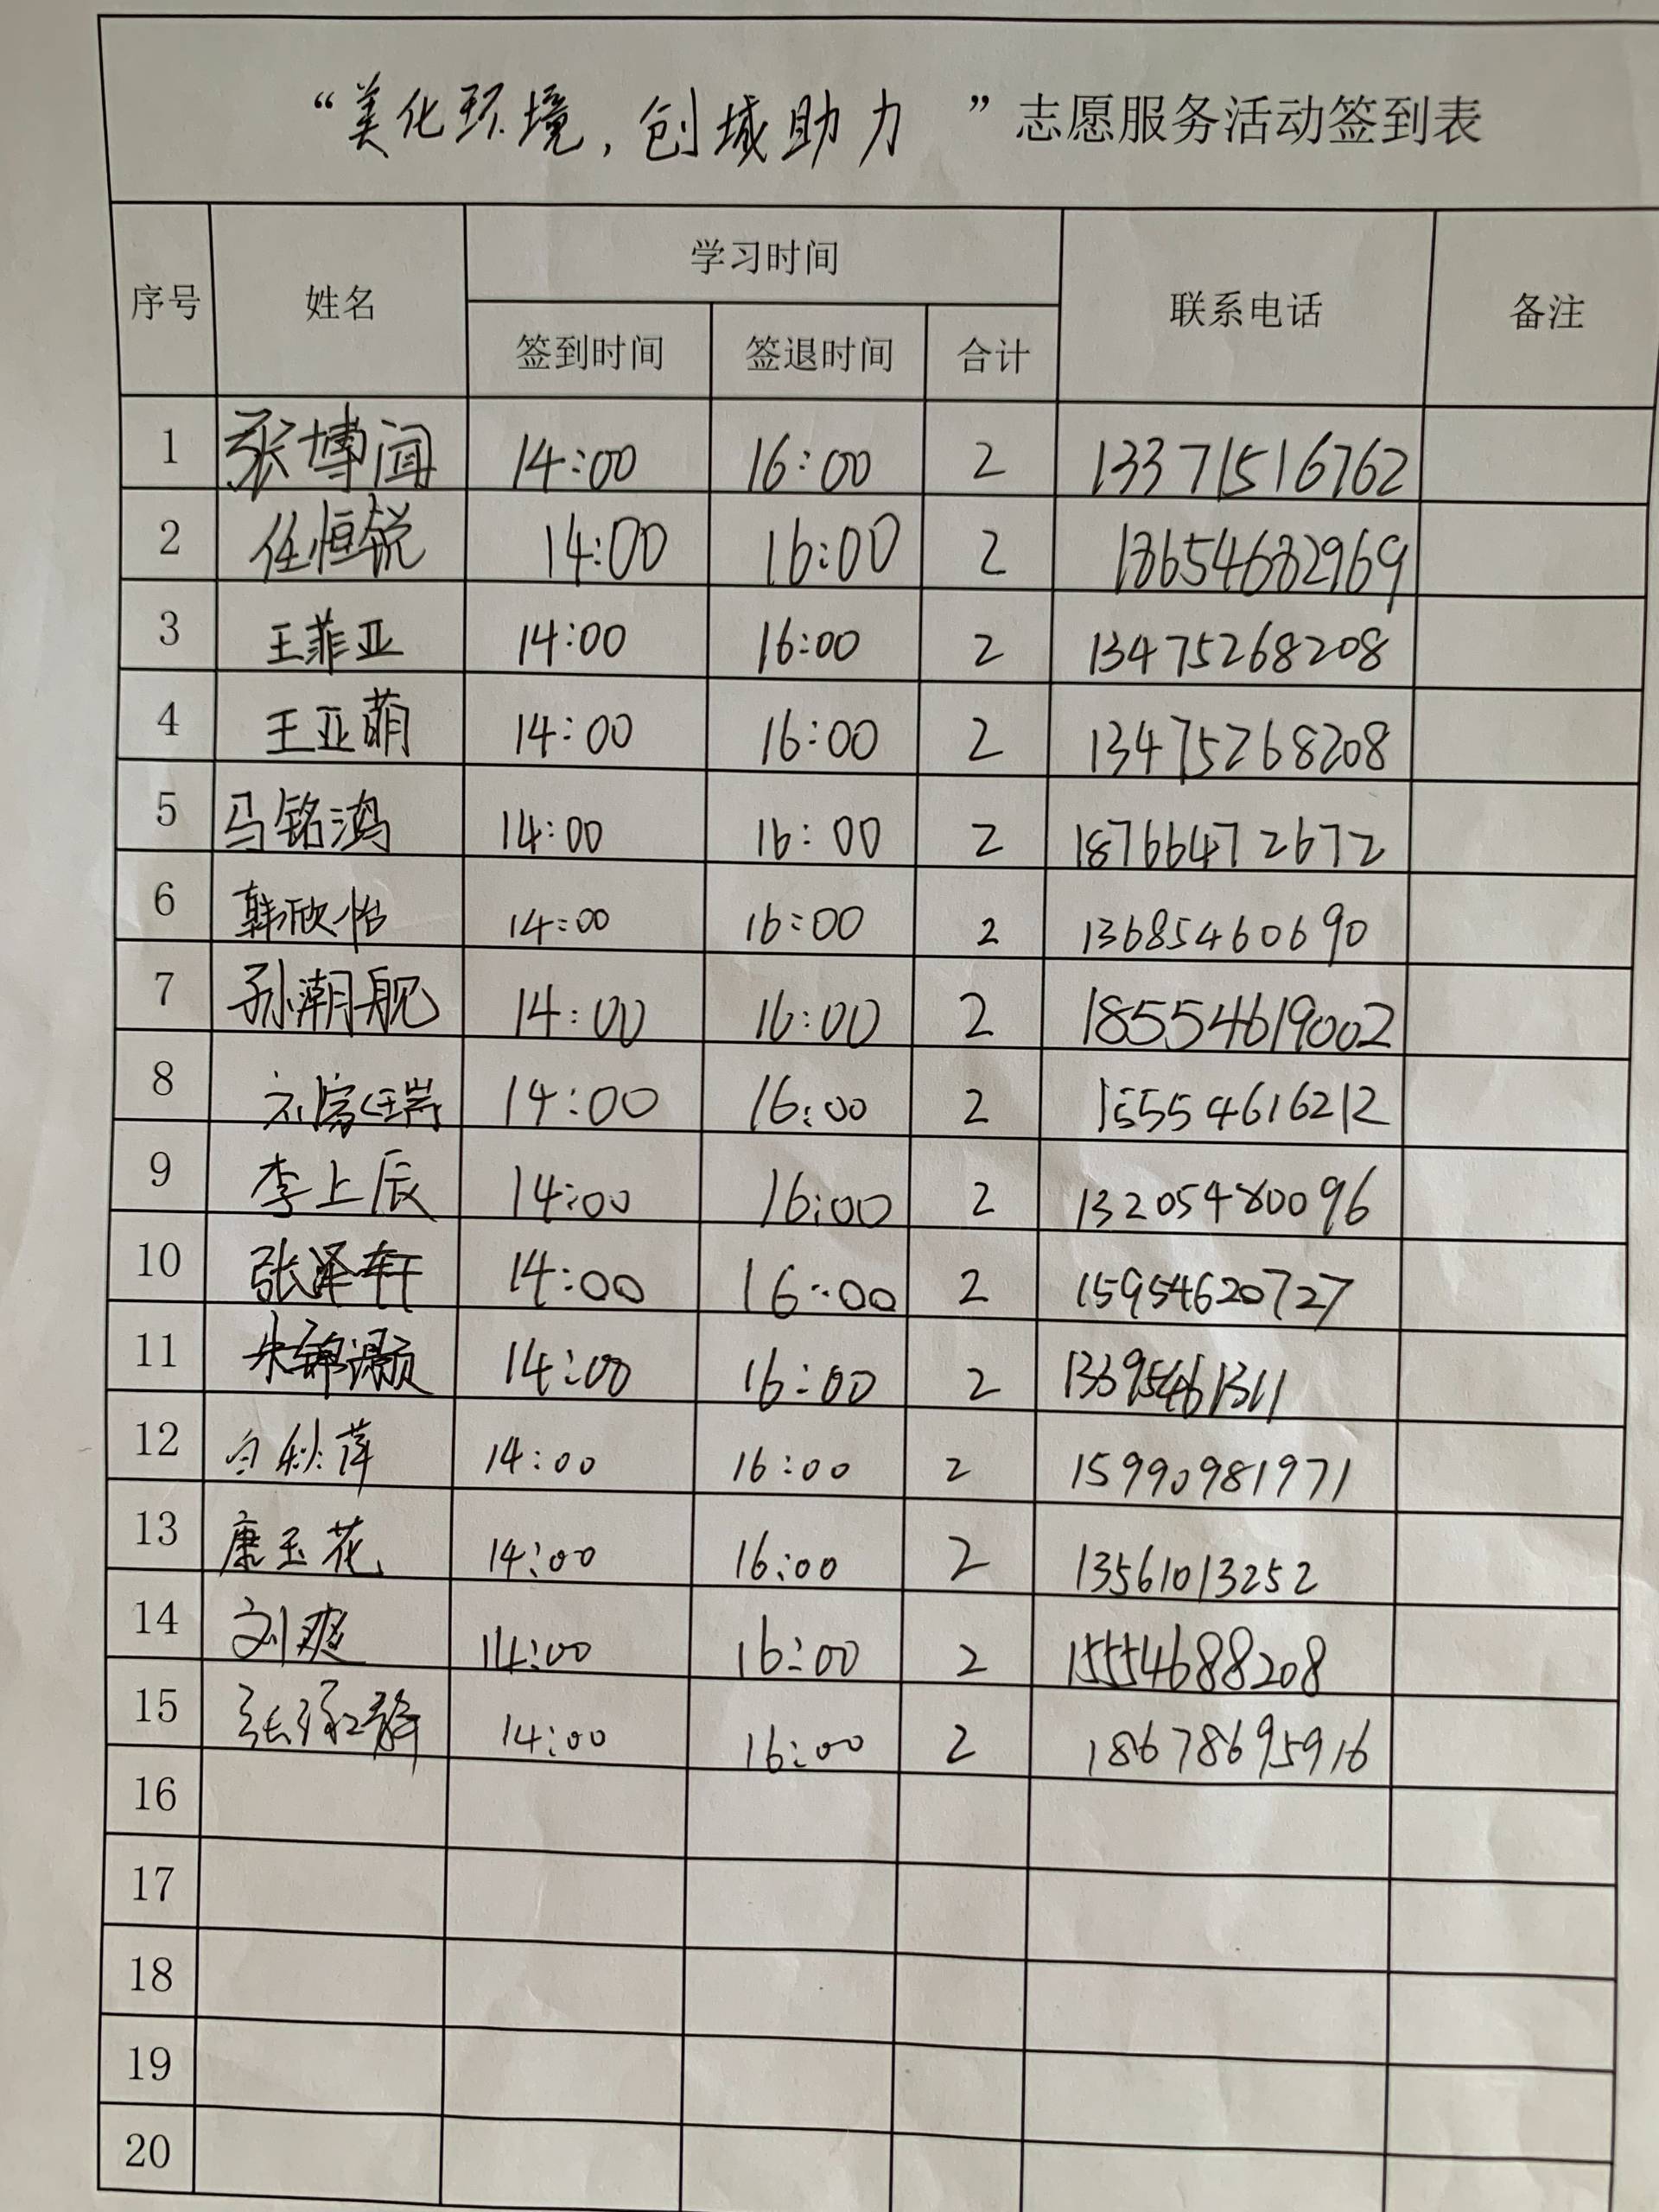 “美化环境,创城助力”志愿服务活动签到表
序号 姓名 学习时间 联系电话 备注
签到时间 签退时间 合计
1 张博闻 14:00 16:00 2 13371516762
2 任恒锐 14:00 16:00 2 18654682969
3 王菲亚 14:00 16:00 2 13475268208
4 王亚萌 14:00 16:00 2 13475268208
5 马铭鸿 14:00 16:00 2 18766472672
6 韩欣怡 14:00 16:00 2 13685460690
7 孙潮舰 14:00 16:00 2 18554619002
8 14:00 16:00 2 15554616212
9 李上辰 14:00 16:00 2 13205480096
10 张泽轩 14:00 16:00 2 15954620727
11 朱锦灏 14:00 16:00 2 13395461311
12 14:00 16:00 2 15990981971
13 康玉花 14:00 16:00 2 13561013252
14 刘爽 14:00 16:00 2 15554688208
15 14:00 16:00 2 18678695916
16
17
18
19
20